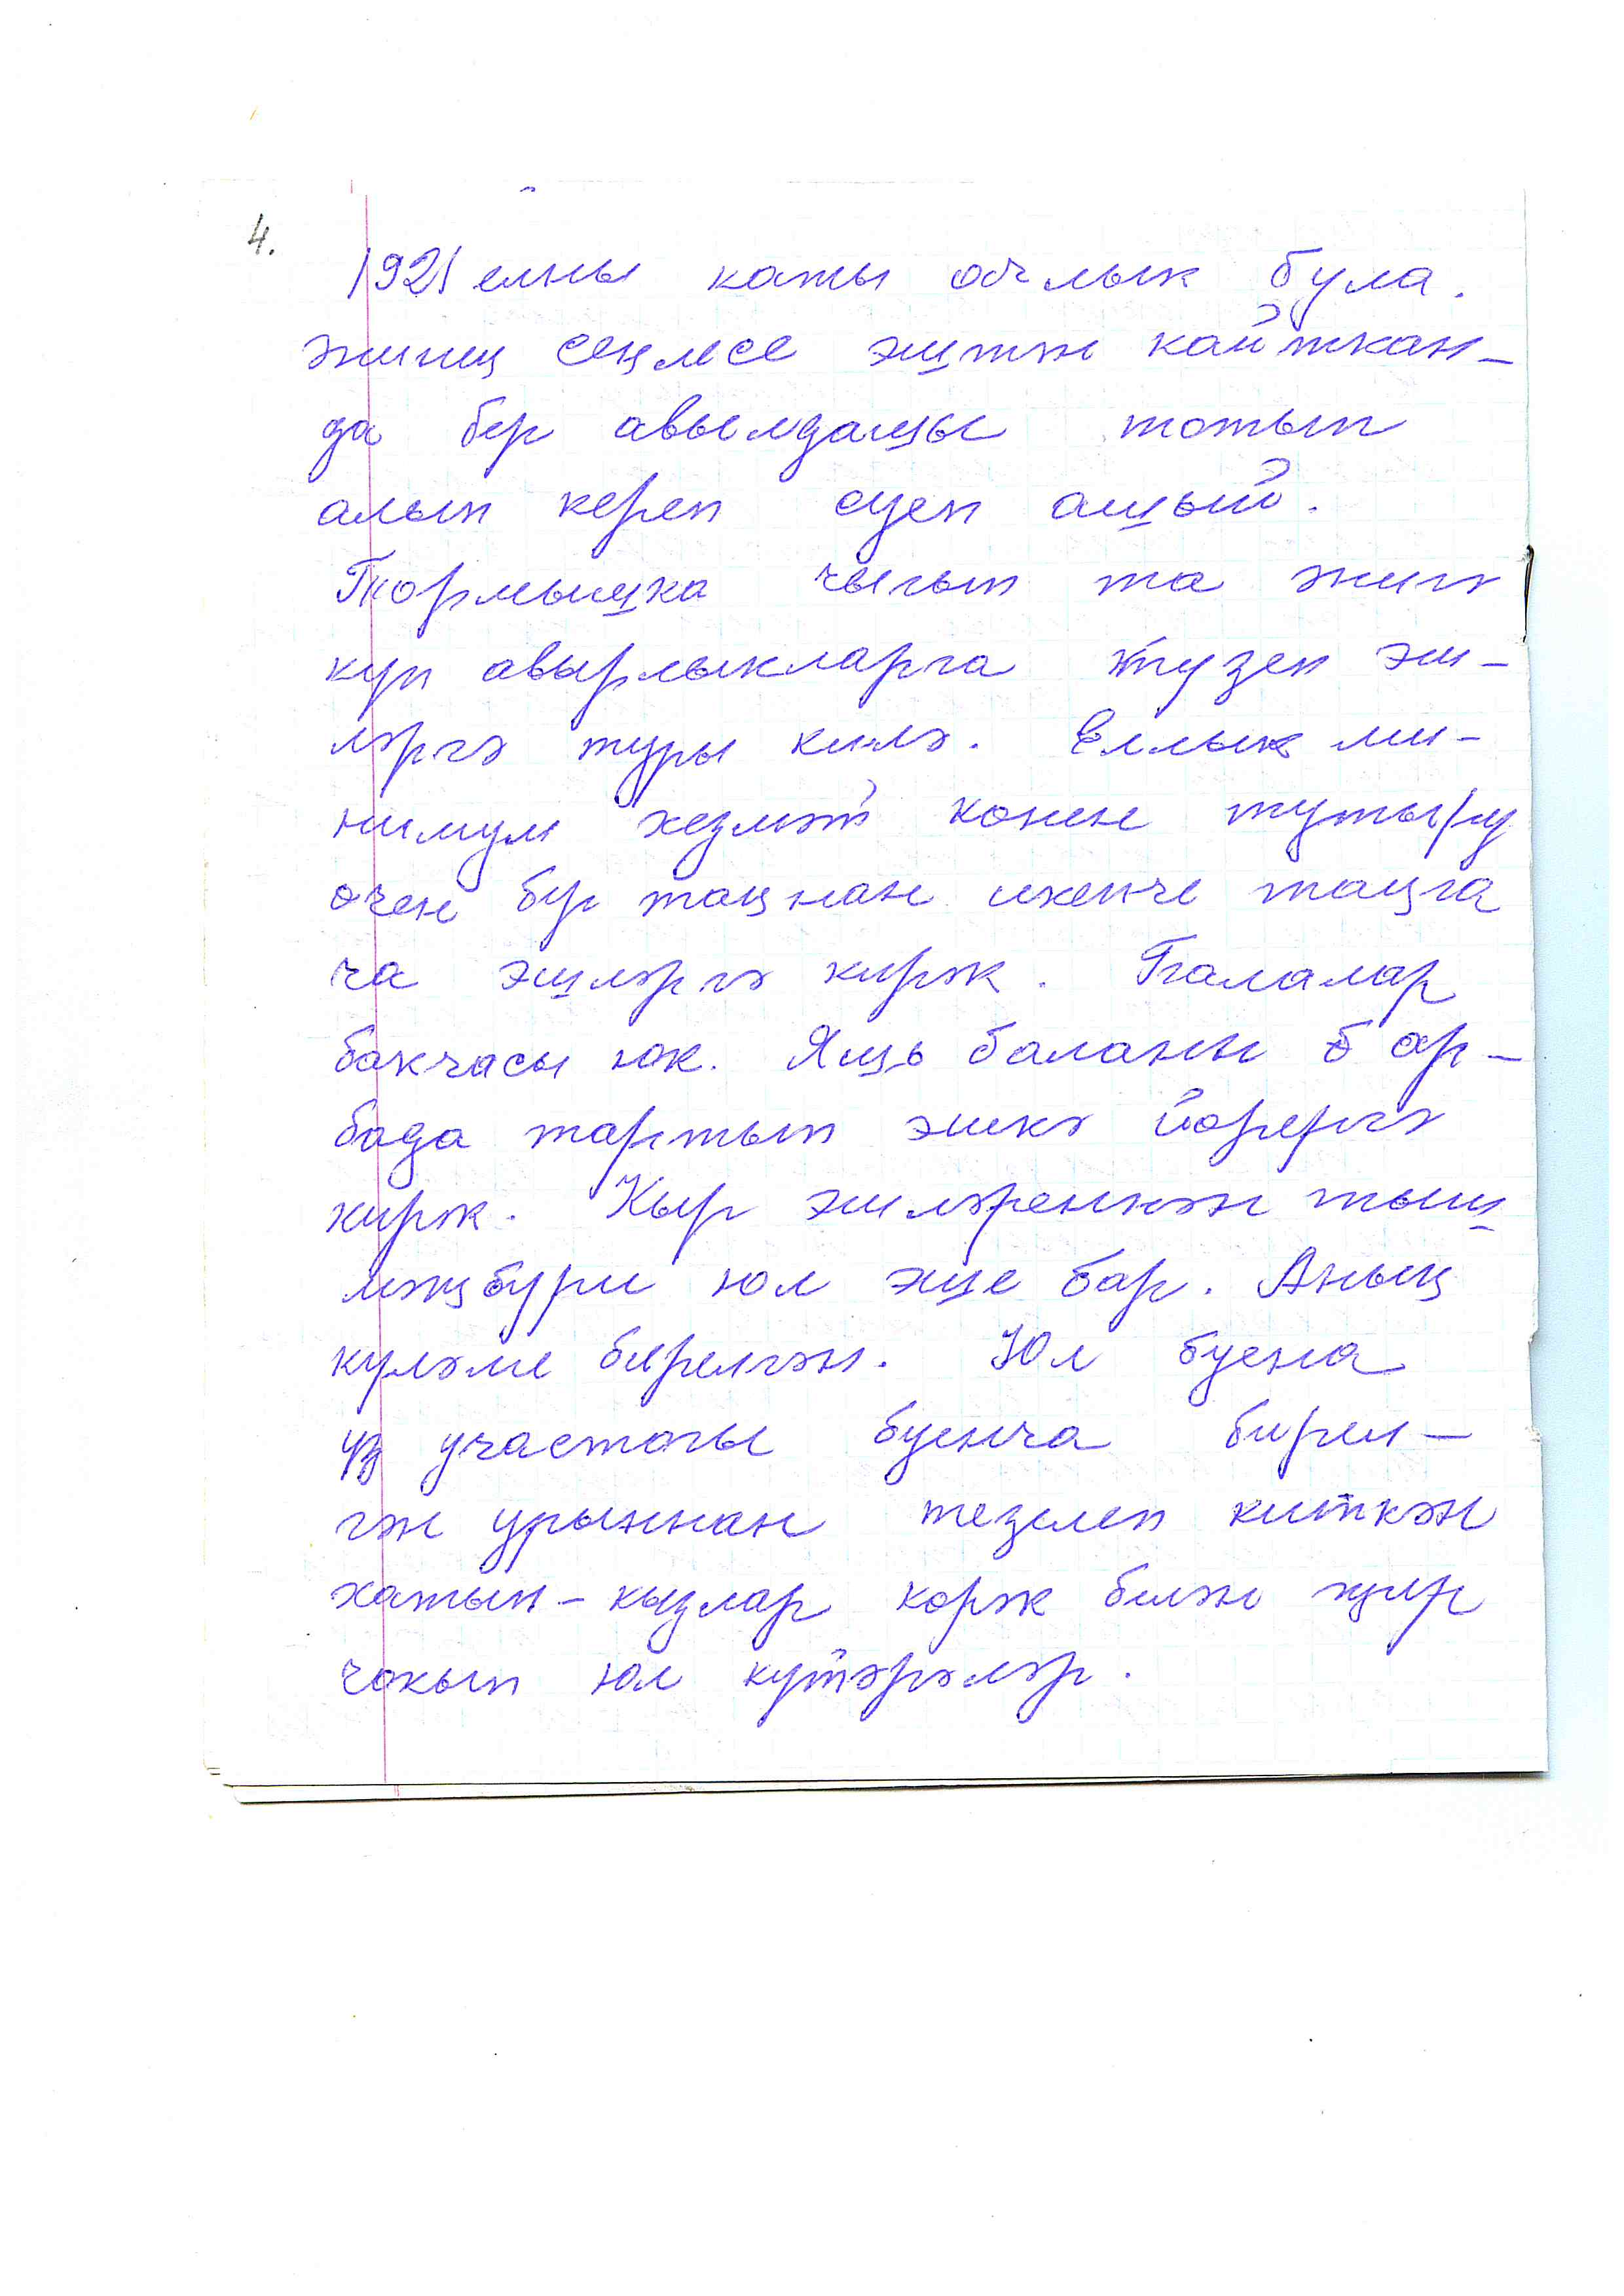 4.
1921 елны каты ачлык була.
әнинең сеңлесе эштән кайткан-
да бер авылдашы тотып
алып кереп суеп ашый.
Тормышка чыгып та әнигә
күп авырлыкларга түзеп эш-
ләргә туры килә. Еллык ми-
нимум хезмәт көнен тутыру
өчен бер таңнан икенче таңга
ча эшләргә кирәк. Балалар
бакчасы юк. Яшь баланы б ар-
бада тартып эшкә йөрергә
кирәк. Кыр эшләреннән тыш
мәҗбүри юл эше бар. Аның
күләме бирелгән. Юл буена
үз участогы буенча бирел-
гән урыннан тезелеп киткән
хатын-кызлар көрәк белән җир
чокып юл күтәрәләр.